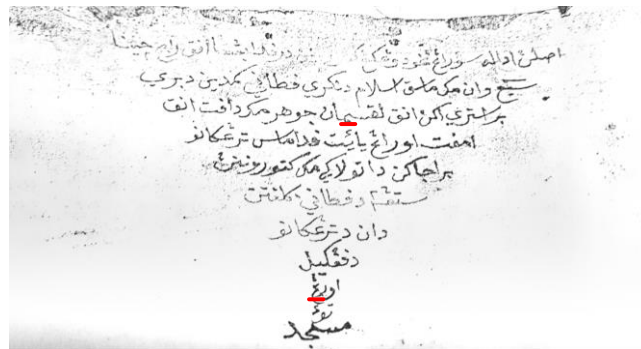 اصلڽ اداله سئورڠ انق راج چينا
سبيڠ وان مک ماسق اسلام دنکري فطاني کمدين دبري
براستري اکن انق لقسمان جوهر مک دافت انق
امفت اورڠ يائيت فد اماس ترڠکانو
براجاکن داتو لاکي مک کتورونڽ
ستڠه دفطاني کلنتن
دان دترڠکانو
دفڠکيل
اورڠ
توء
مسجد